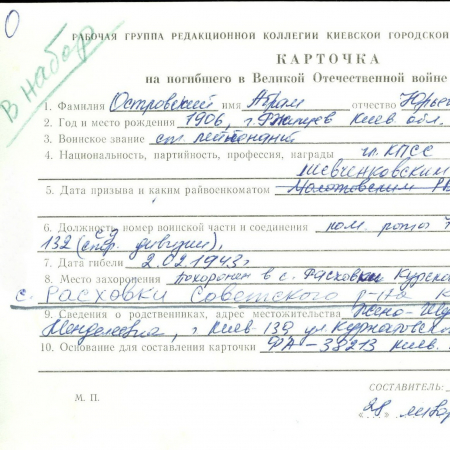 О
В набор
РАБОЧАЯ ГРУППА РЕДАКЦИОННОЙ КОЛЛЕГИИ КИЕВСКОЙ ГОРОДСКОЙ
КАРТОЧКА
на погибшего в Великой Отечественной войне
1. Фамилия Островский имя Абрам отчество Юрье
2. Год и место рождения 1906, г. Ржищев Киев обл.
3. Воинское звание ст. лейтенант
4. Национальность, партийность, профессия, награды чл. КПСС
5. Дата призыва и каким райвоенкоматом Молотовским Р
Шевченковским
6. Должность, номер воинской части и соединения пом. роты
132 (стр. дивизии),
7. Дата гибели 2.02.1943 г
8. Место захоронения похоронен в с. Расховки Курско
с. Расховки Советского р-на К
9. Сведения о родственниках, адрес местожительства Жена-
Менделевна, г Киев-139, ул. Курнатовско
10. Основание для составления карточки ФА-38213 Киев.
СОСТАВИТЕЛЬ:
М. П.
"28"